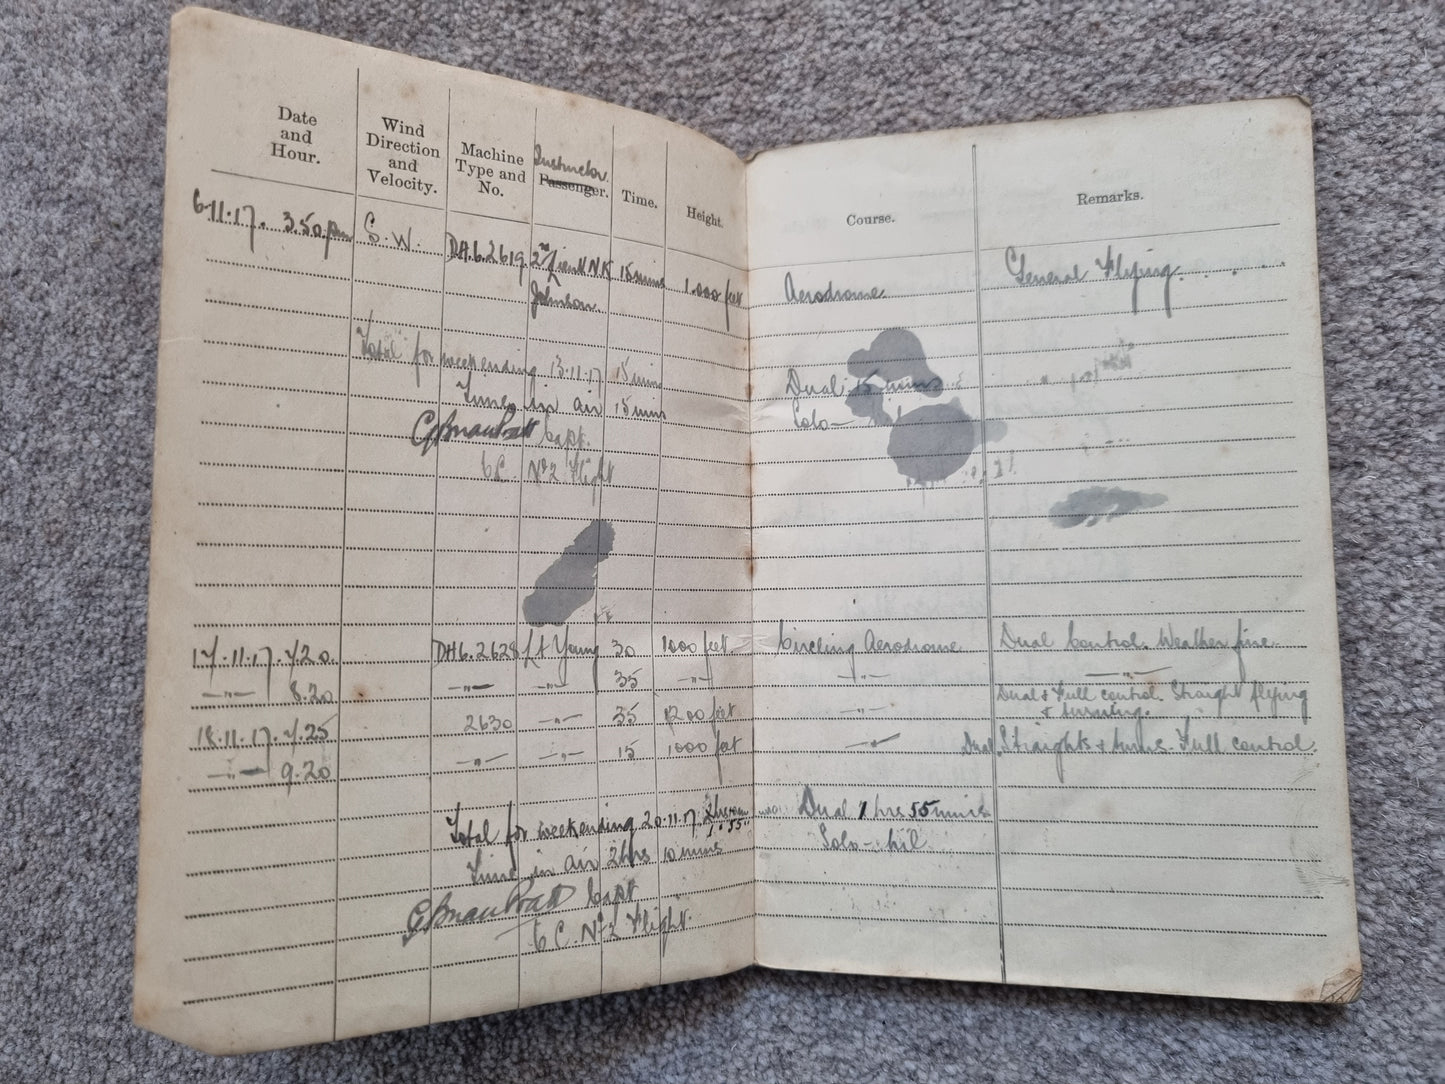 Date and Hour. Wind Direction and Velocity. Machine Type and No. Instructor Passenger. Time. Height. Course. Remarks.
6.11.17. 3.50.pm S.W. DH.6.2619. 2nd Lieut N.K 15 mins 1.000 feet Aerodrome General Flying.
Johnson
Total for week ending 13.11.17 15 mins Dual 15 mins
Time in air 15 mins Solo —
Capt.
C. N°2 Flight
17.11.17. 7.20. DH6.2628 Lt Young 30 1000 feet. Circling Aerodrome Dual Control. Weather fine.
—"— 8.20 —"— —"— 35 —"— —"— —"—
Dual & Full control. Straight flying
18.11.17. 7.25 2630 —"— 35 1200 feet —"— & turning.
—"— 9.20 —"— —"— 15 1000 feet —"— Dual Straights & turns. Full control.
Total for week ending 20.11.17. 1 55" Dual 1 hrs 55 mins
Time in air 2 hrs 10 mins Solo — nil
Capt
C. N°2 Flight.